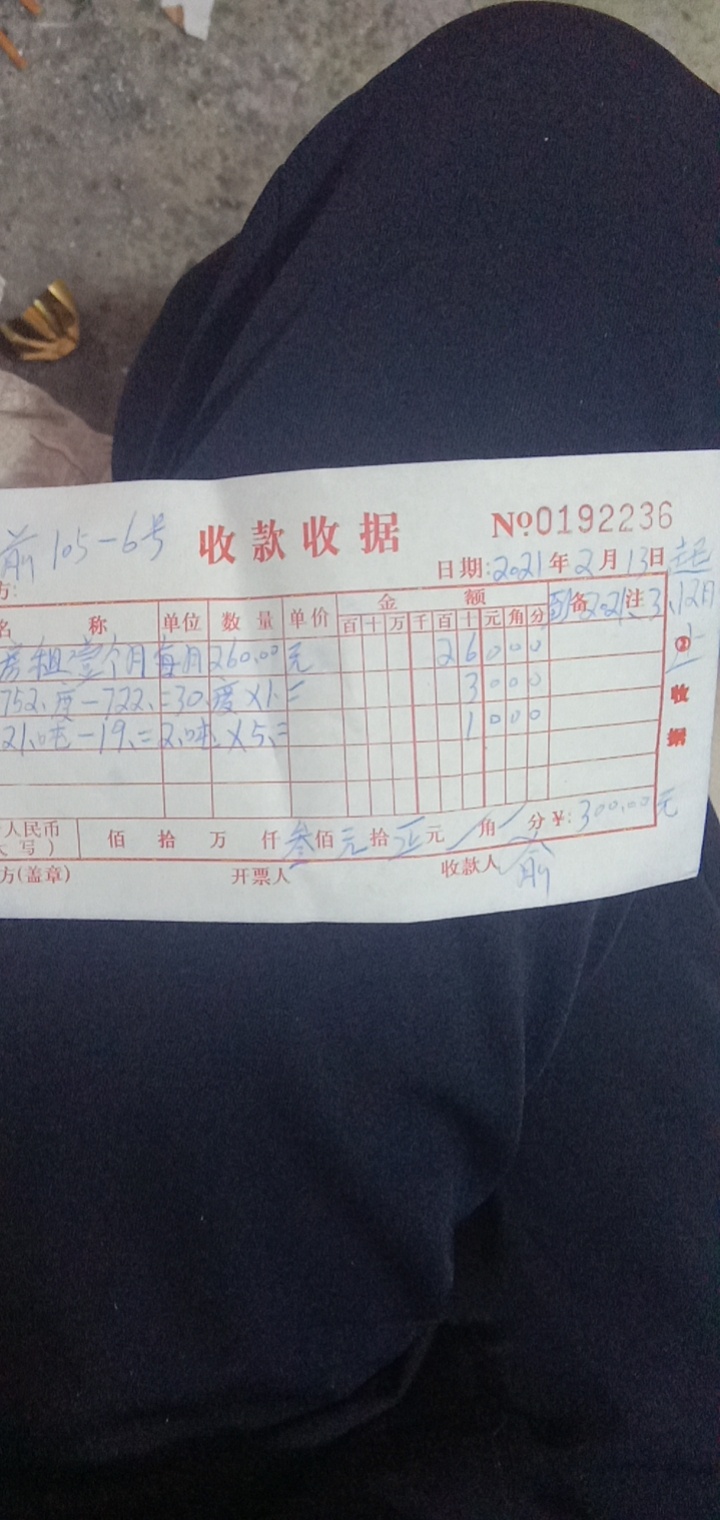 前105-6号 收款收据 №0192236
日期:2021年2月13日起
方:
名 称 单位 数量 单价 金额 备注
到2021、3、12日止
百 十 万 千 百 十 元 角 分
房租壹个月每月260.00元 2 6 0 0 0
752、度-722、=30、度×1、= 3 0 0 0
21、吨-19、=2、吨×5、= 1 0 0 0
② 收据
人民币 佰 拾 万 仟 叁佰元拾正元 / 角 / 分 ¥:300.00元
大写)
方(盖章) 开票人 收款人